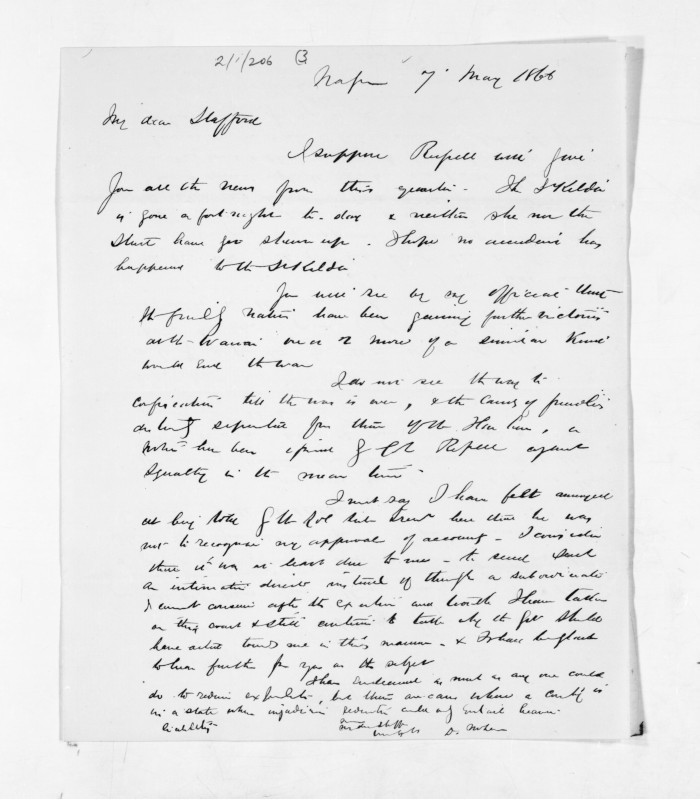 2/1/206 (3
Napier 7 May 1866
My dear Stafford
I suppose Russell will give
you all the news from this quarter - The St Kilda
is gone a fortnight to-day & neither she nor the
Sturt have yet shewn up. I hope no accident has
happened to the St Kilda
You will see by my official that
the friendly Natives have been gaining further victories
at the Wairoa one or 2 more of a similar kind
would end the war
I do not see the way to
confiscation till the war is over, & the lands of friendlies
distinctly separated from those of the Hau hau, a
notice has been issued by Col Russell against
Squatting in the mean time -
I must say I have felt annoyed
at being told by the Sub Treasr here that he was
not to recognise my approval of accounts - I consider
there it was at least due to me - to send such
an intimation direct instead of through a subordinate
I cannot conceive after the exertion and trouble I have taken
on this coast & still continue to take why the Govt should
have acted towards me in this manner - & I shall be glad
to hear further from you on the subject
I have endeavoured as much as any one could
do to reduce expenditure, but there are cases where a country is
in a state when injudicious reduction could only entail heavier
liability